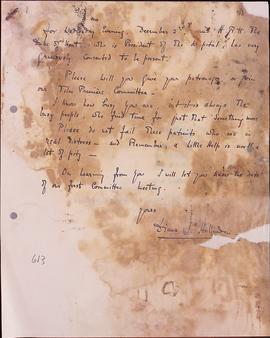 for Wednesday Evening December 2nd and H.R.H. The
Duke of Kent, who is President of The Hospital, has very
graciously consented to be present.
Please will you give your patronage & join
our Film Premiere Committee.
I know how busy you are, but it is always the
busy people who find time for just that something more
Please do not fail these patients who are in
real distress - and Remember, a little Help is worth a
lot of pity -
On hearing from you I will let you know the date
of our first Committee meeting.
Yours
613